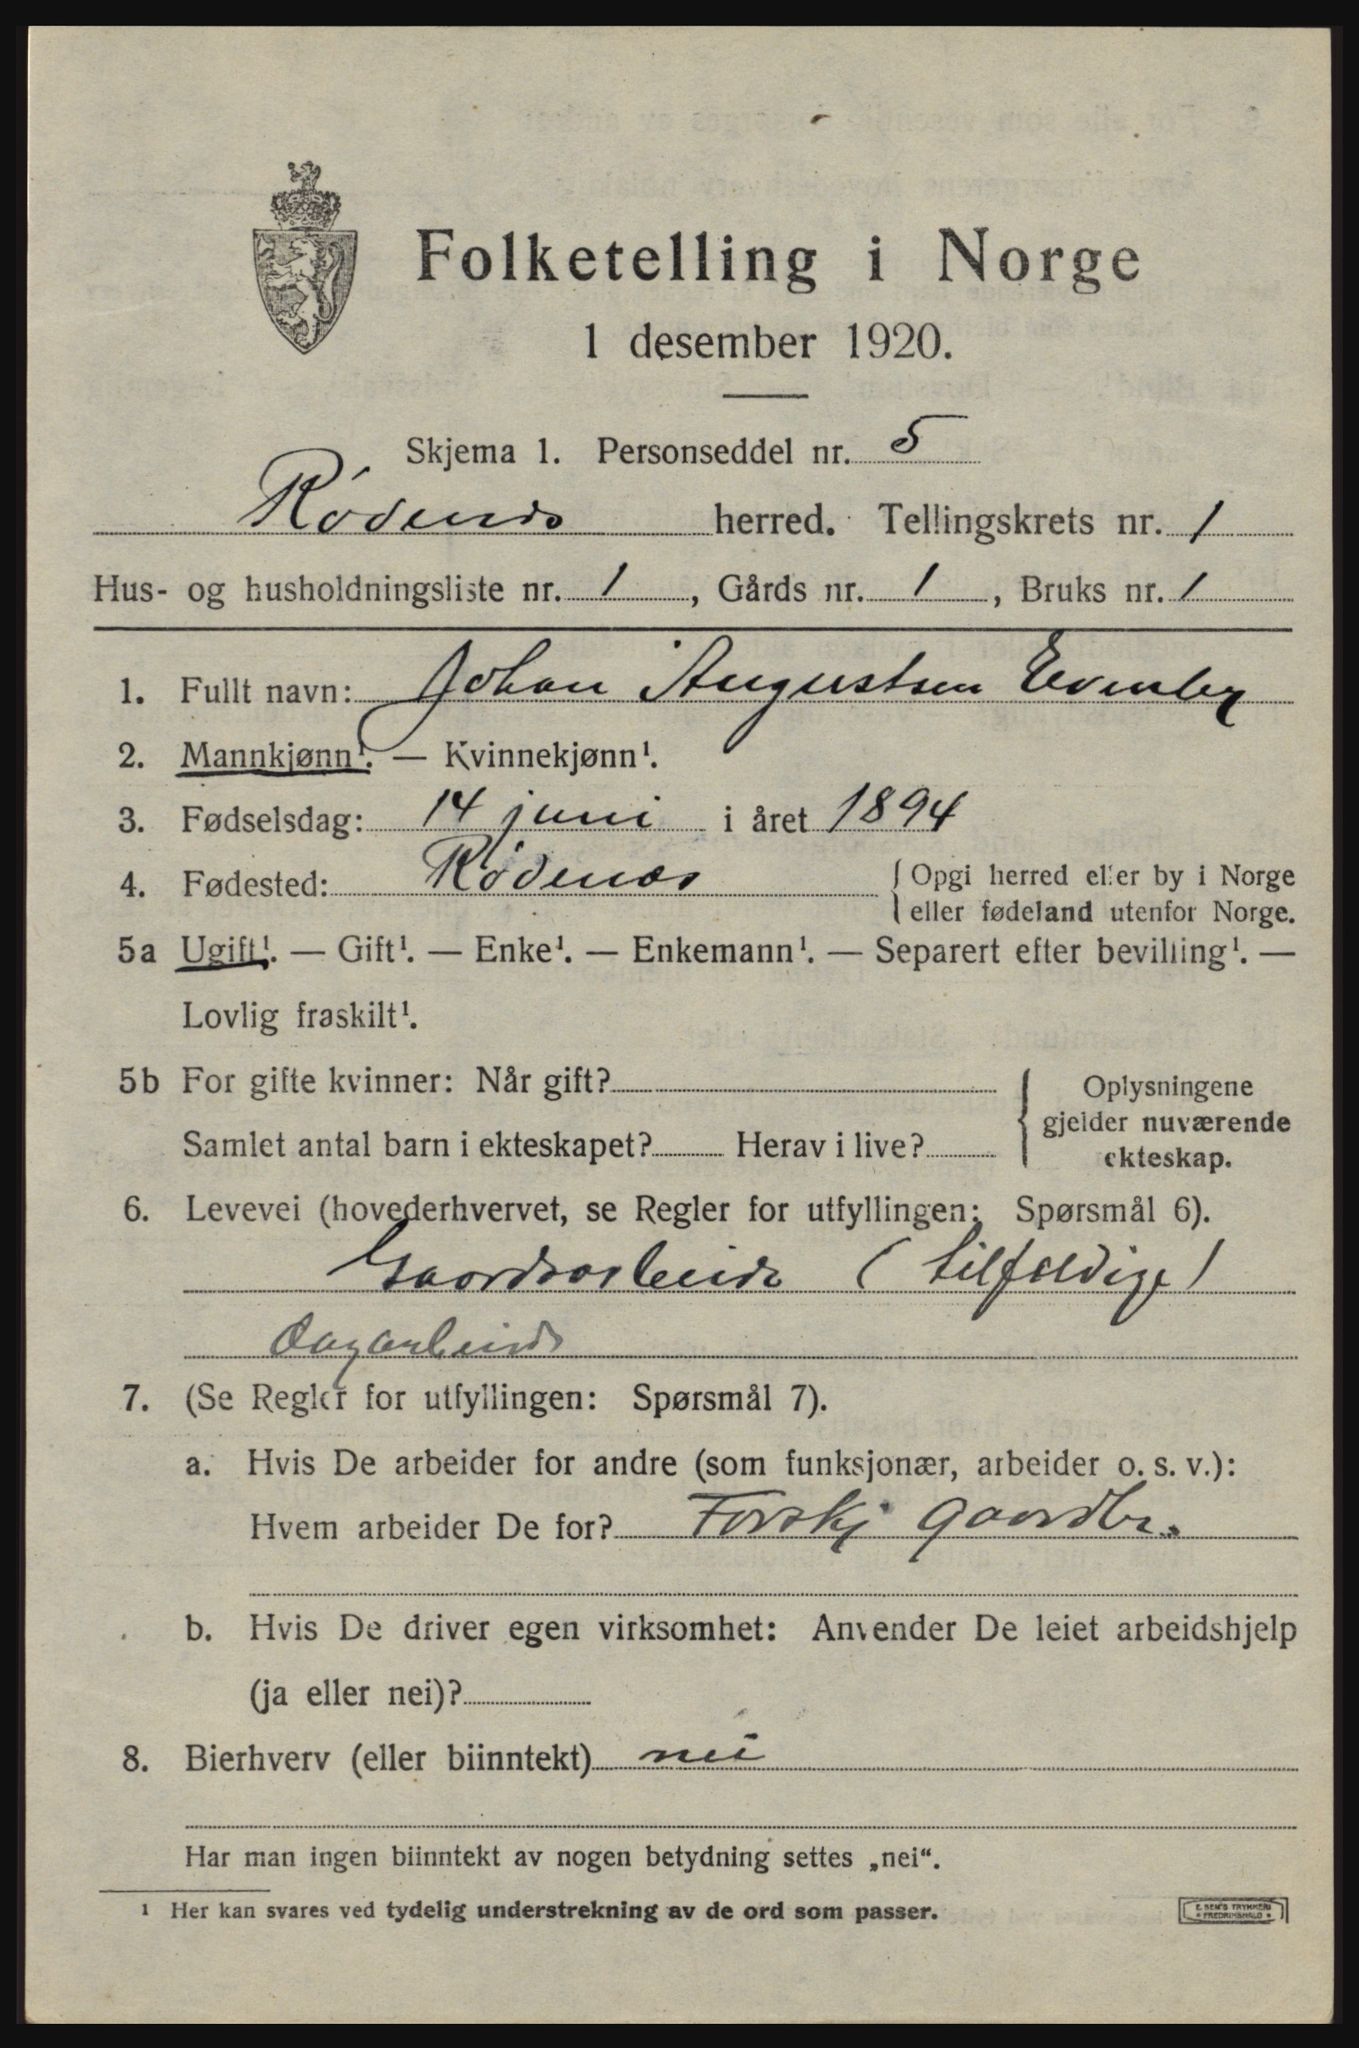 Folketelling i Norge
1 desember 1920.
Skjema 1. Personseddel nr. 5
Rødenes herred. Tellingskrets nr. 1
Hus- og husholdningsliste nr. 1, Gårds nr. 1, Bruks nr. 1
1. Fullt navn: Johan Augustsen Evenby
2. Mannkjønn¹. — Kvinnekjønn¹.
3. Fødselsdag: 14 juni i året 1894
4. Fødested: Rødenes { Opgi herred eller by i Norge
eller fødeland utenfor Norge.
5a Ugift¹. — Gift¹. — Enke¹. — Enkemann¹. — Separert efter bevilling¹. —
Lovlig fraskilt¹.
5b For gifte kvinner: Når gift?
Samlet antal barn i ekteskapet? Herav i live?
{ Oplysningene
gjelder nuværende
ekteskap.
6. Levevei (hovederhvervet, se Regler for utfyllingen: Spørsmål 6).
Gaardsarbeide (tilfeldige)
dagarbeide
7. (Se Regler for utfyllingen: Spørsmål 7).
a. Hvis De arbeider for andre (som funksjonær, arbeider o. s. v.):
Hvem arbeider De for? Forskj gaardbr.
b. Hvis De driver egen virksomhet: Anvender De leiet arbeidshjelp
(ja eller nei)?
8. Bierhverv (eller biinntekt) nei
Har man ingen biinntekt av nogen betydning settes „nei“.
¹ Her kan svares ved tydelig understrekning av de ord som passer.
E. SEM'S TRYKKERI
* FREDRIKSHALD *